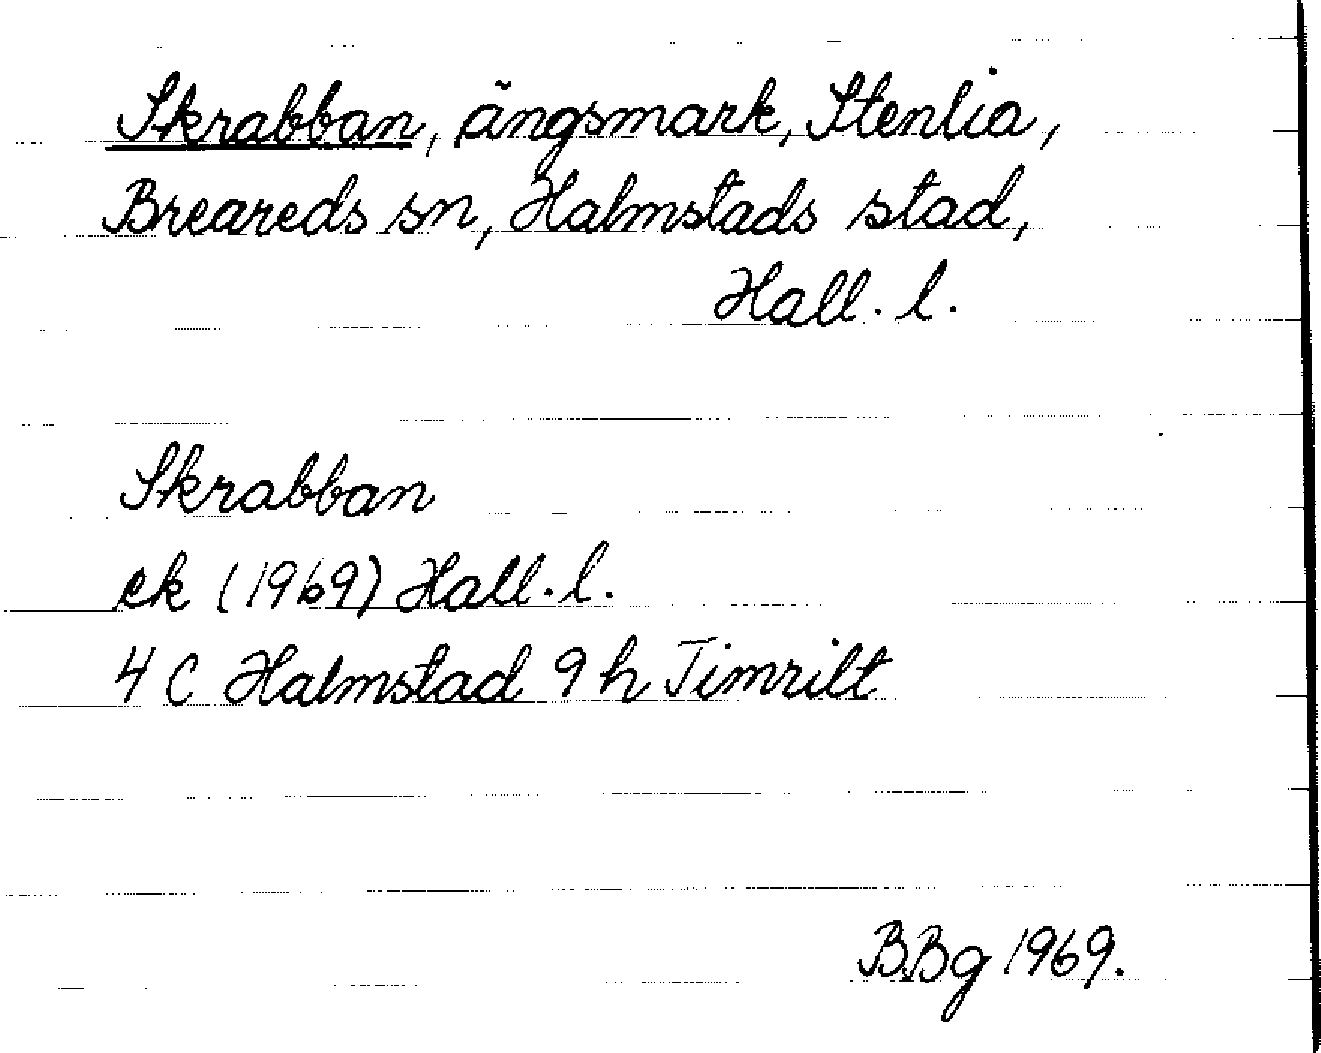 Skrabban, ängsmark, Stenlia,
Breareds sn, Halmstads stad,
Hall. l.
Skrabban
ek (1969) Hall. l.
4 C Halmstad 9 h Timrilt
B.Bg 1969.